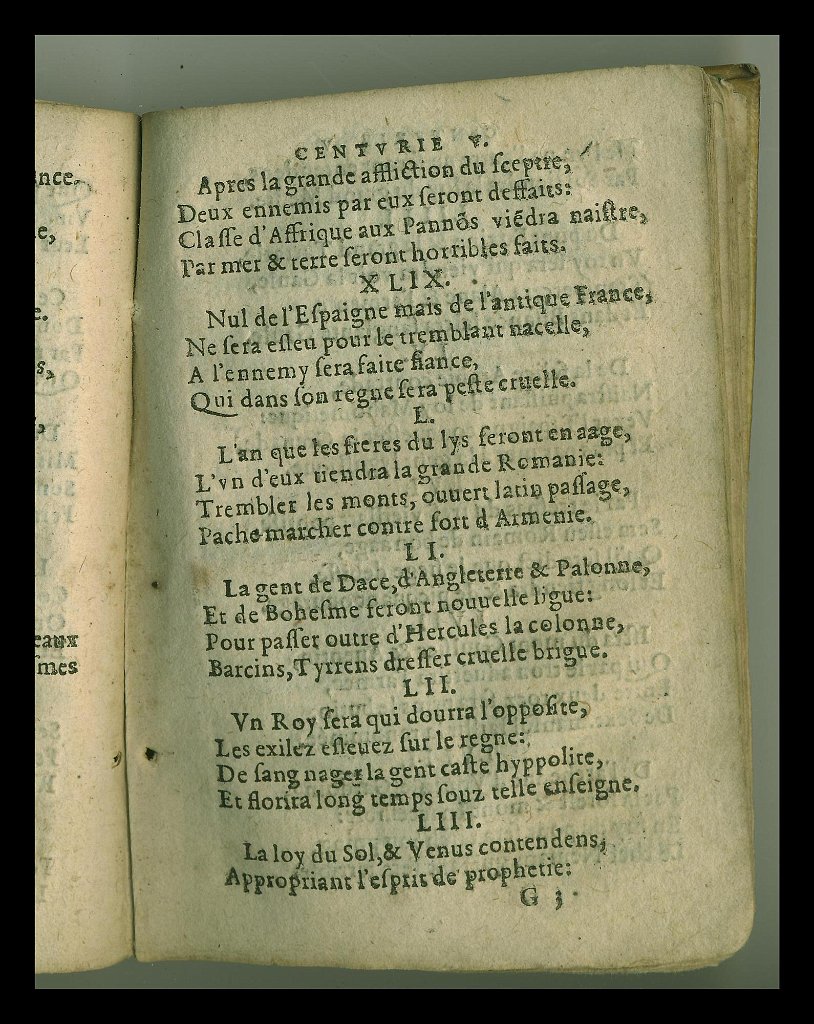 nce.
e,
e.
s,
eaux
ſmes
CENTVRIE V.
Apres la grande affliction du ſceptre,
Deux ennemis par eux ſeront deffaits:
Claſſe d'Affrique aux Pannõs viẽdra naiſtre,
Par mer & terre ſeront horribles faits.
XLIX.
Nul de l'Eſpaigne mais de l'antique France,
Ne ſera eſleu pour le tremblant nacelle,
A l'ennemy ſera faite fiance,
Qui dans ſon regne ſera peſte cruelle.
L.
L'an que les freres du lys ſeront en aage,
L'vn d'eux tiendra la grande Romanie:
Trembler les monts, ouuert latin paſſage,
Pache marcher contre fort d'Armenie.
LI.
La gent de Dace, d'Angleterre & Palonne,
Et de Boheſme feront nouuelle ligue:
Pour paſſer outre d'Hercules la colonne,
Barcins, Tyrrens dreſſer cruelle brigue.
LII.
Vn Roy ſera qui dourra l'oppoſite,
Les exilez eſleuez ſur le regne:
De ſang nager la gent caſte hyppolite,
Et florira long temps ſouz telle enſeigne.
LIII.
La loy du Sol, & Venus contendens,
Appropriant l'eſprit de prophetie:
G 3